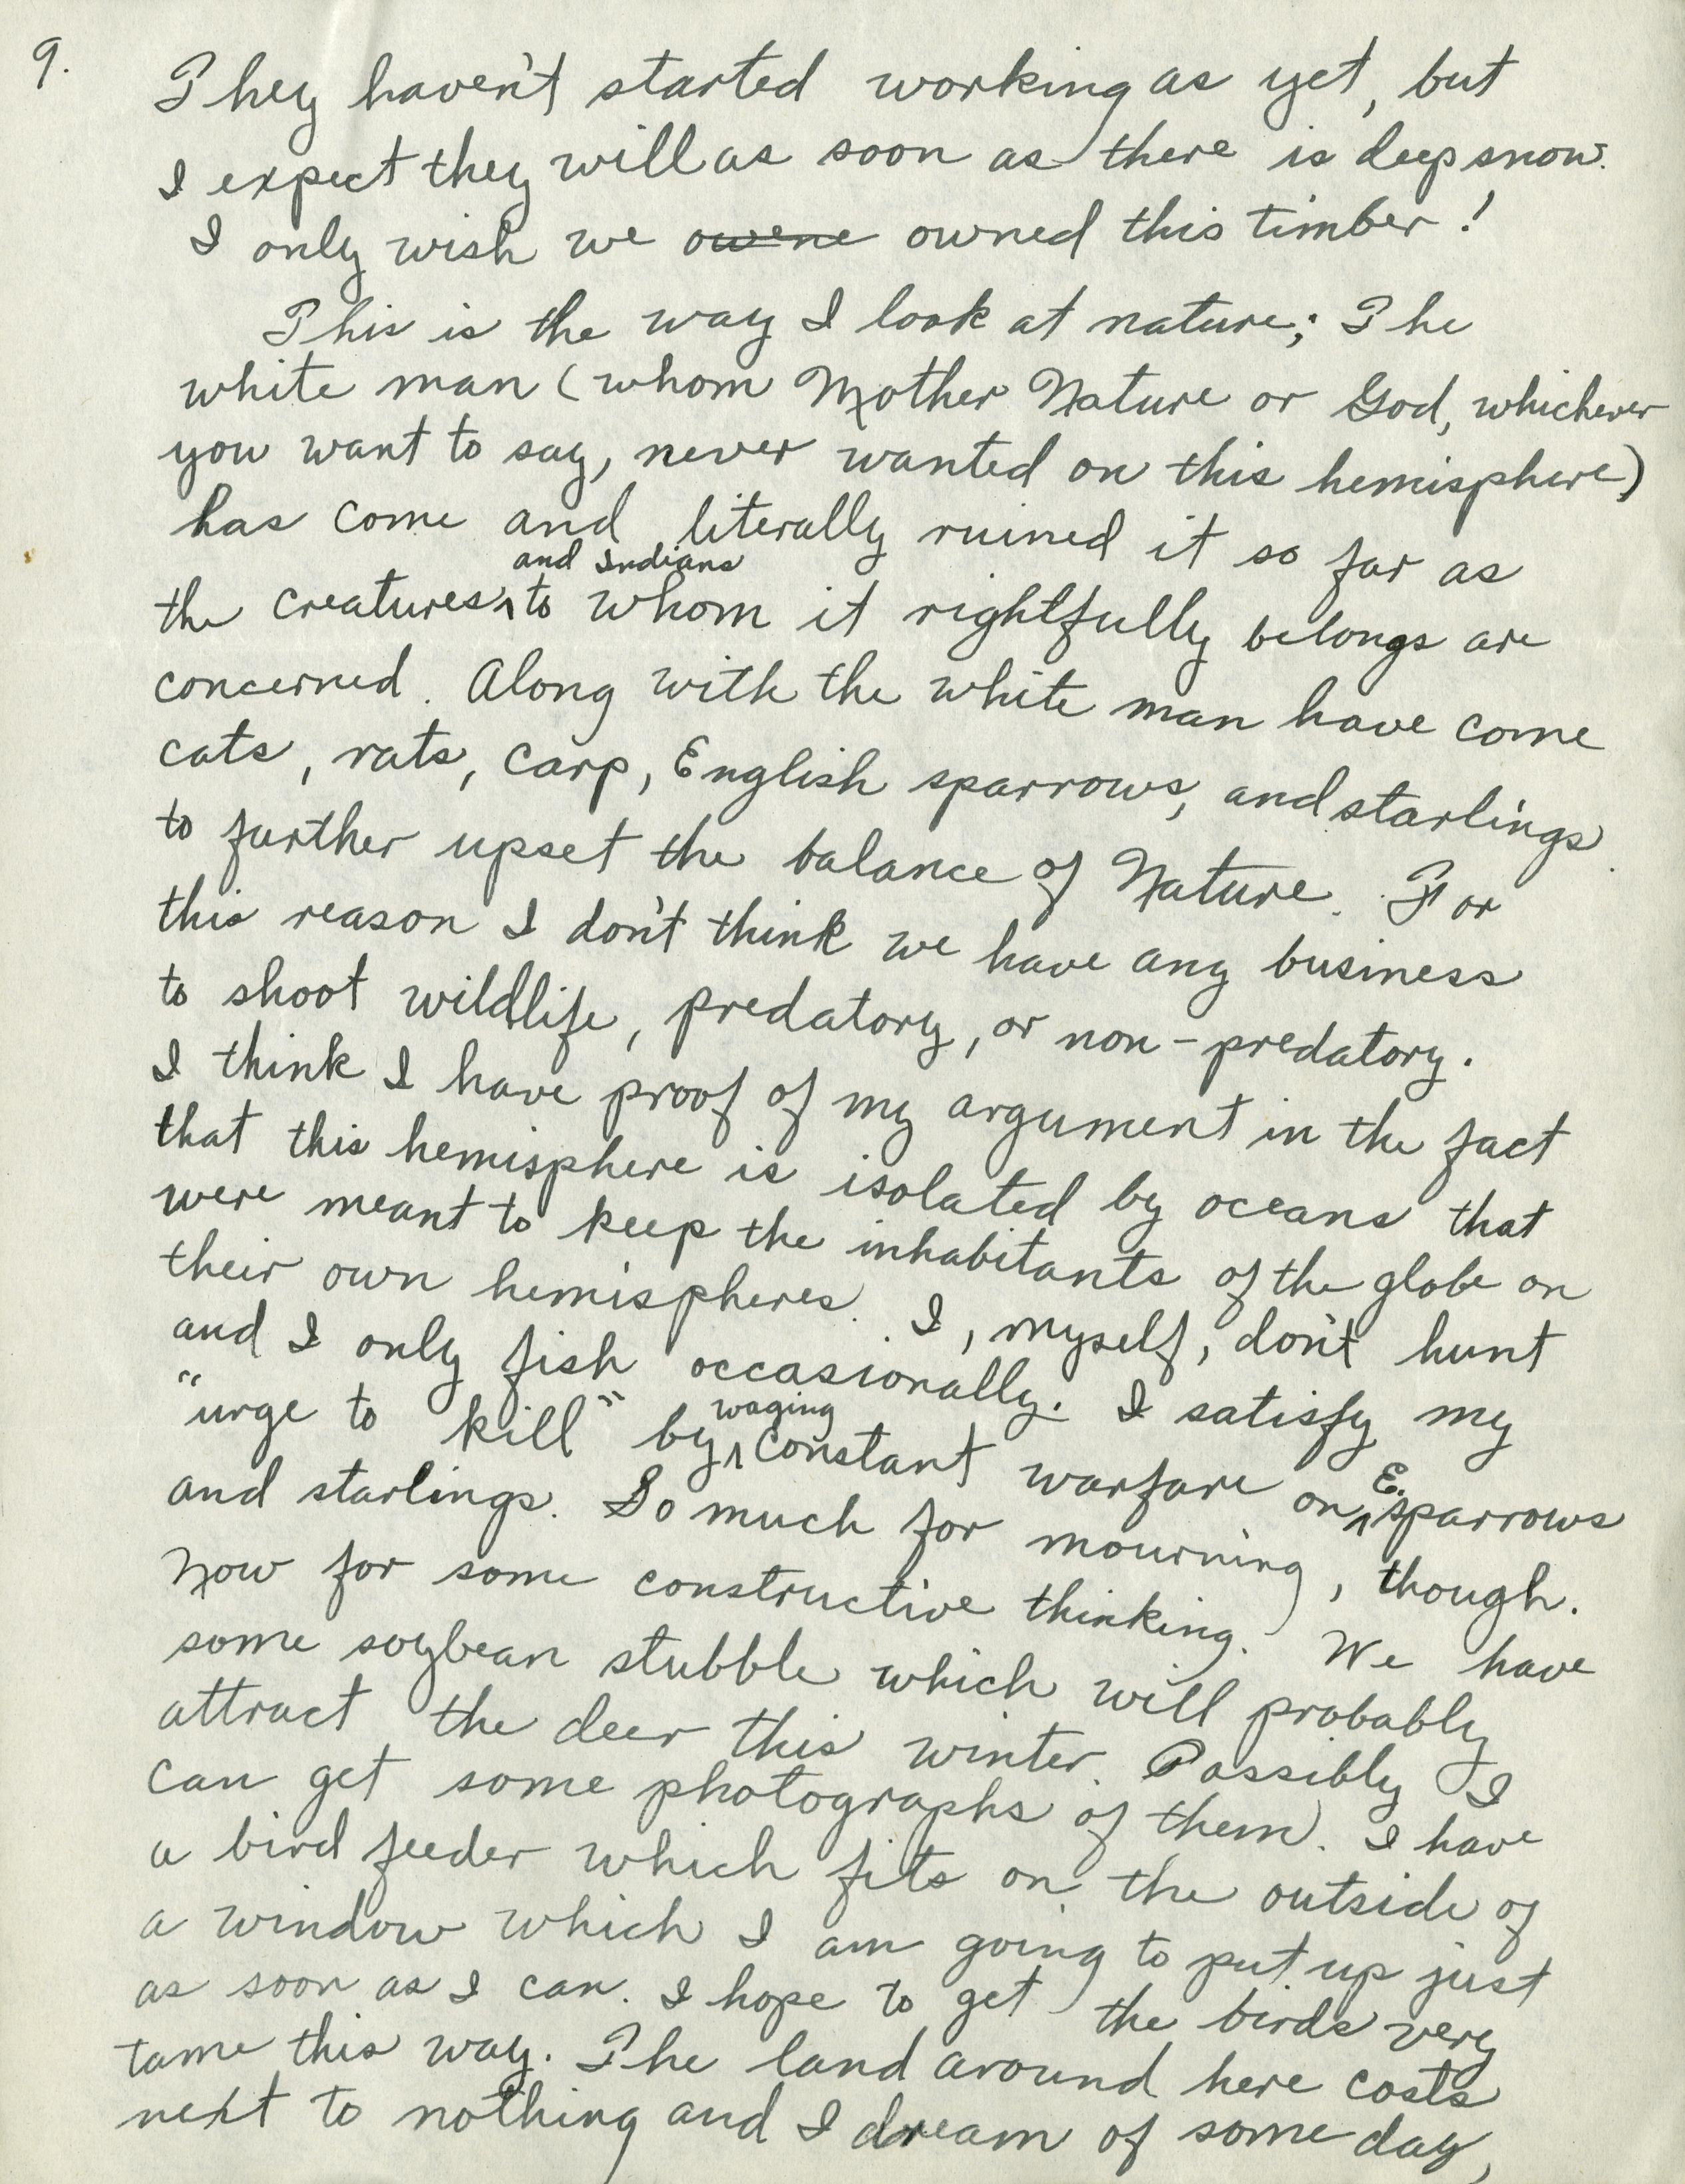 9.
They haven't started working as yet, but
I expect they will as soon as there is deep snow.
I only wish we owene owned this timber!
This is the way I look at nature; The
white man (whom Mother Nature or God, whichever
you want to say, never wanted on this hemisphere)
has come and literally ruined it so far as
and Indians
the creatures to whom it rightfully belongs are
concerned. Along with the white man have come
cats, rats, carp, English sparrows, and starlings
to further upset the balance of Nature. For
this reason I don't think we have any business
to shoot wildlife, predatory, or non-predatory.
I think I have proof of my argument in the fact
that this hemisphere is isolated by oceans that
were meant to keep the inhabitants of the globe on
their own hemispheres. I, myself, don't hunt
and I only fish occasionally. I satisfy my
waging
"urge to kill" by constant warfare on E. sparrows
and starlings. So much for mourning, though.
Now for some constructive thinking. We have
some soybean stubble which will probably
attract the deer this winter. Possibly I
can get some photographs of them. I have
a bird feeder which fits on the outside of
a window which I am going to put up just
as soon as I can. I hope to get the birds very
tame this way. The land around here costs
next to nothing and I dream of some day,